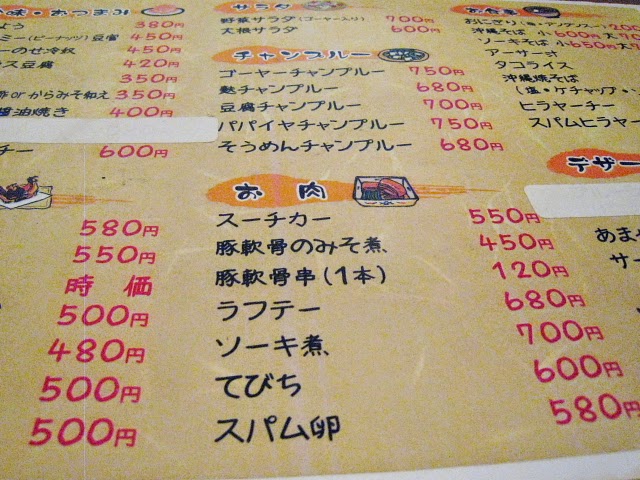 味・おつまみ
よう 380円
ミー(ピーナッツ)豆腐 450円
ーのせ冷奴 450円
ス豆腐 420円
350円
酢orからみそ和え 350円
醤油焼き 400円
チー 600円
580円
550円
時価
500円
480円
500円
500円
サラダ
野菜サラダ(ゴーヤー入り) 700円
大根サラダ 600円
チャンプルー
ゴーヤーチャンプルー 750円
麩チャンプルー 680円
豆腐チャンプルー 700円
パパイヤチャンプルー 750円
そうめんチャンプルー 680円
お肉
スーチカー 550円
豚軟骨のみそ煮 450円
豚軟骨串(1本) 120円
ラフテー 680円
ソーキ煮 700円
てびち 600円
スパム卵 580円
お食事
おにぎり 200
沖縄そば 小600円 大7
ソーキそば 小650円 大
アーサー汁
タコライス
沖縄焼そば
(塩・ケチャップ・
ヒラヤーチー
スパムヒラヤー
デザー
あまゃ
サー